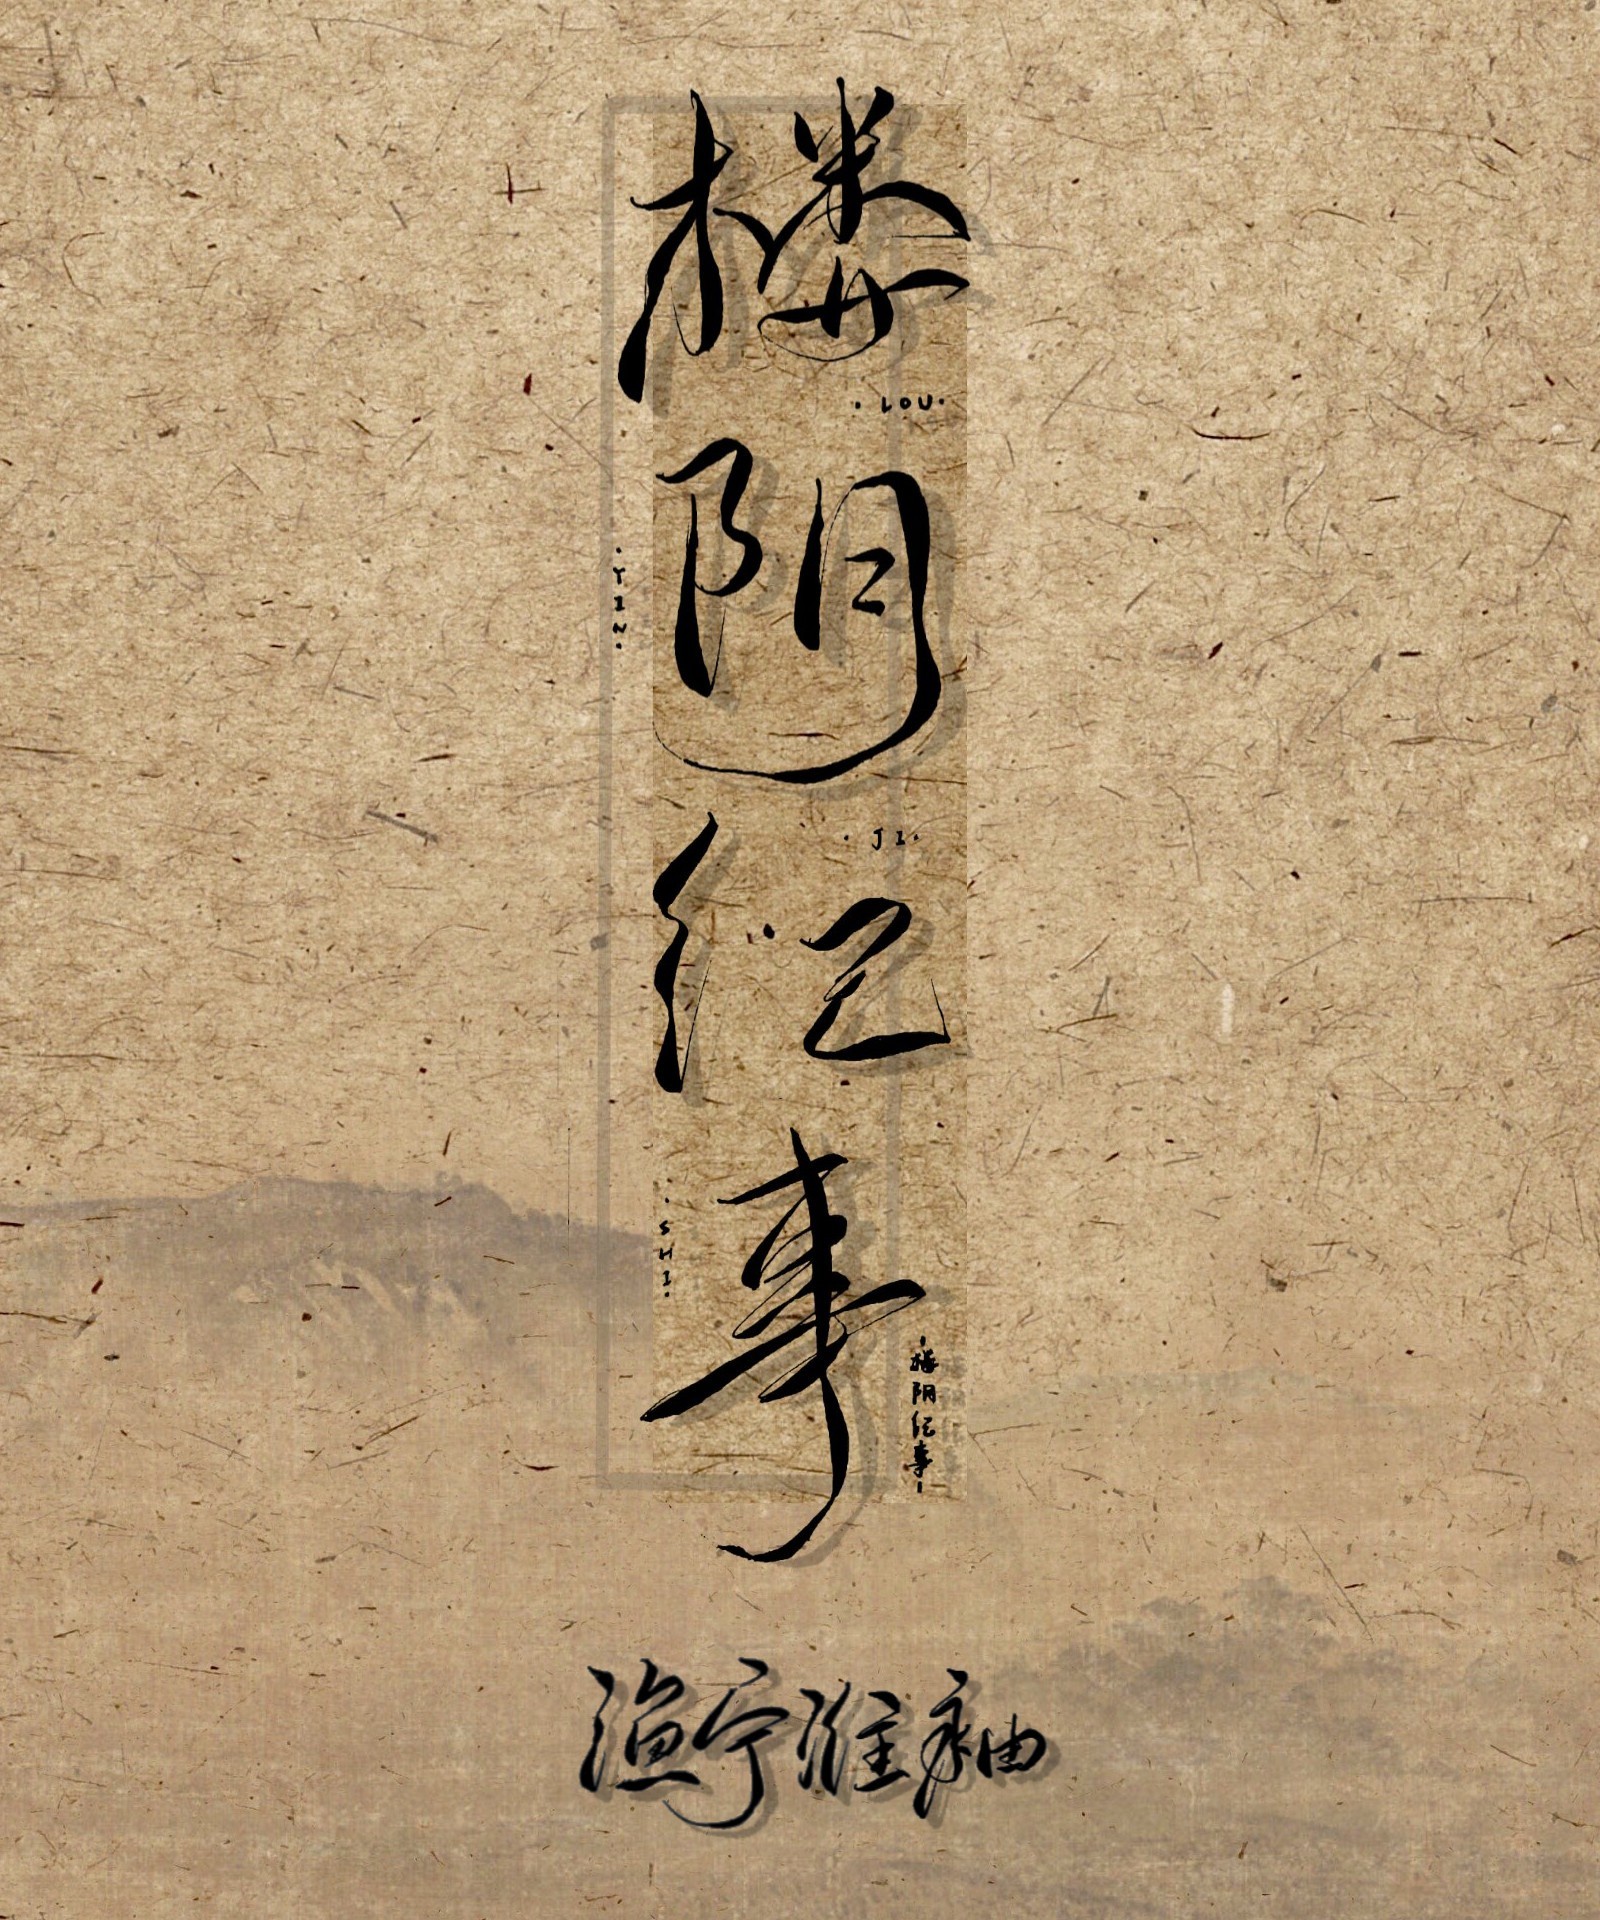 楼阴纪事
·LOU·
·YIN·
·JI·
·SHI·
·楼阴纪事-
渔宁惟袖